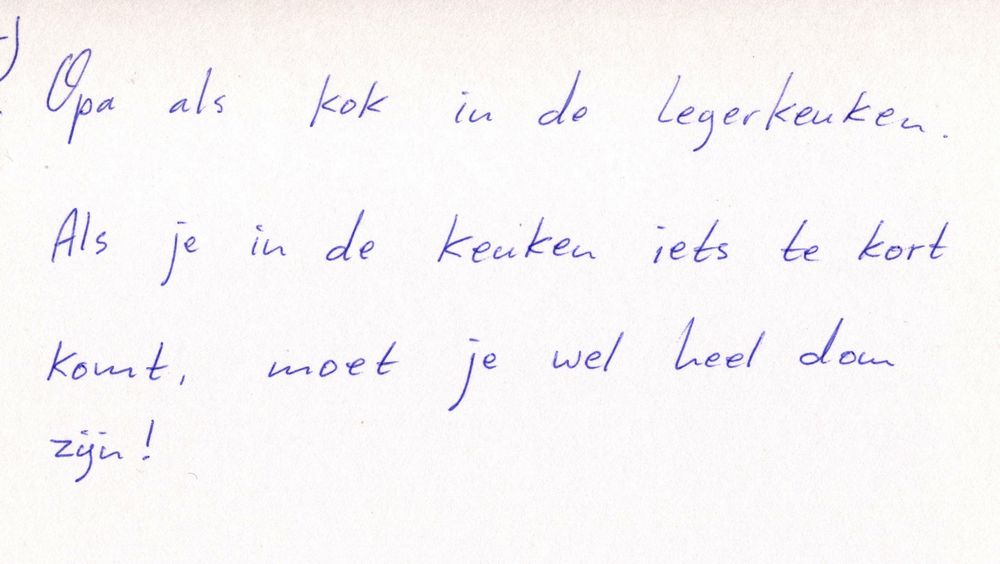 Opa als kok in de legerkeuken.
Als je in de keuken iets te kort
komt, moet je wel heel dom
zijn!